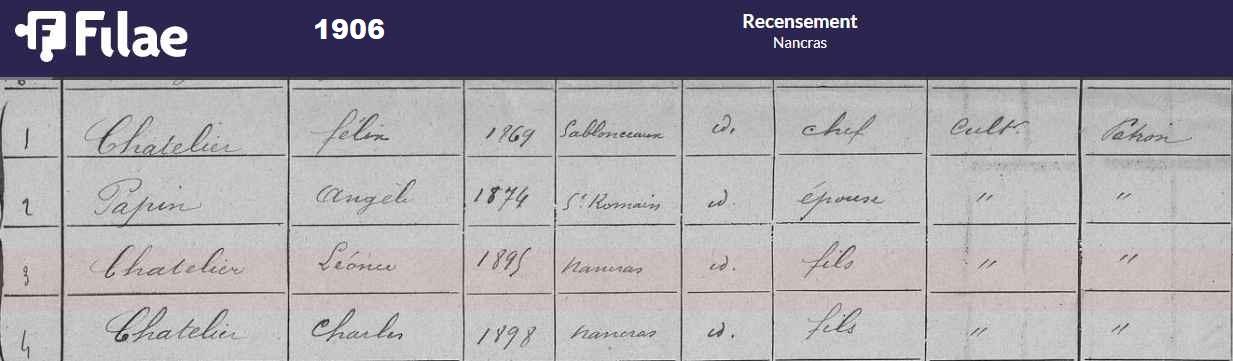 Filae
1906
Recensement
Nancras
1 Chatelier félix 1869 Sablonceaux id. chef cult. Patron
2 Papin Angèle 1874 St Romain id. épouse " "
3 Chatelier Léonce 1895 Nancras id. fils " "
4 Chatelier Charles 1898 Nancras id. fils " "